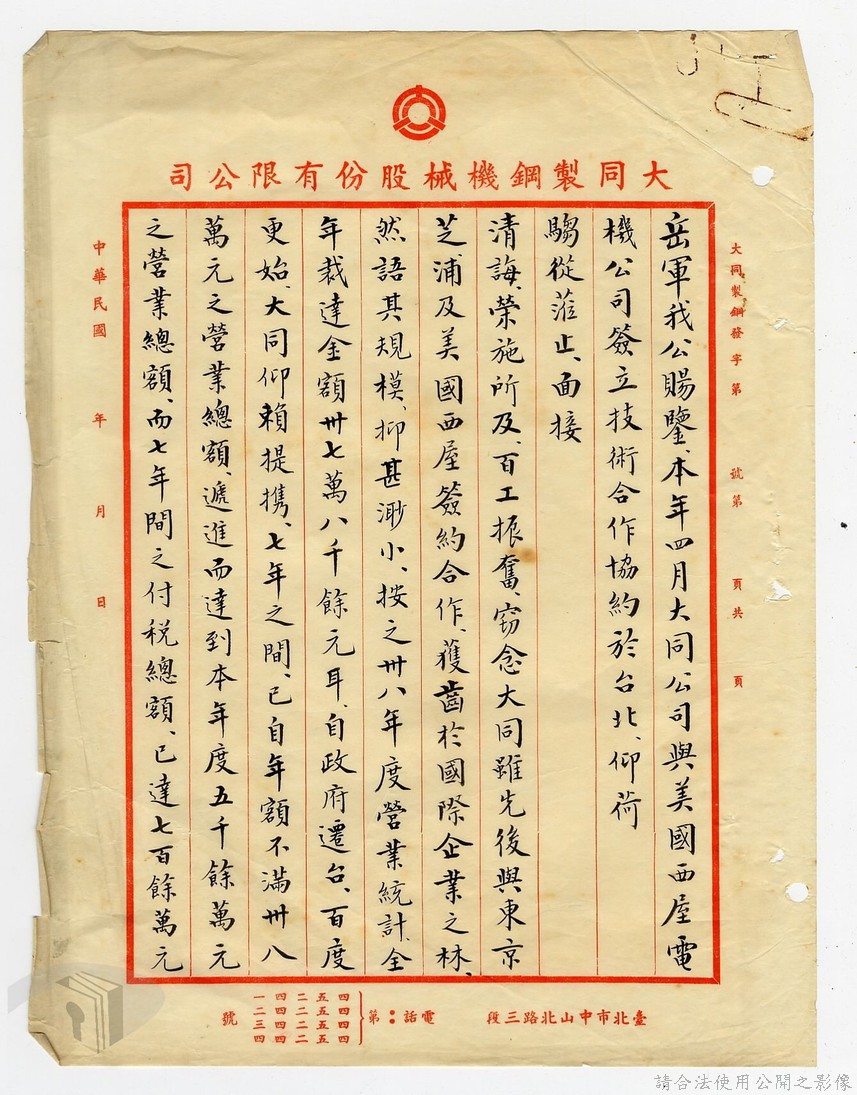 大同製鋼機械股份有限公司
大同製鋼發字第　號第　頁共　頁
岳軍我公賜鑒、本年四月大同公司與美國西屋電
機公司簽立技術合作協約於台北、仰荷
騶從蒞止、面接
清誨、榮施所及、百工振奮、竊念大同雖先後與東京
芝浦及美國西屋簽約合作、獲齒於國際企業之林、
然語其規模、抑甚渺小、按之卅八年度營業統計、全
年裁達金額卅七萬八千餘元耳、自政府遷台、百度
更始、大同仰賴提携、七年之間、已自年額不滿卅八
萬元之營業總額、遞進而達到本年度五千餘萬元
之營業總額、而七年間之付稅總額、已達七百餘萬元
中華民國　年　月　日
臺北市中山北路三段　電話：第
四五二四一
四五二四二
四五二四三
四五二四四
號
請合法使用公開之影像